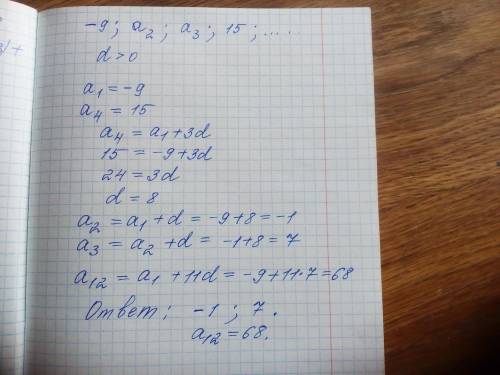 -9; a₂; a₃; 15; ... .
d > 0
a₁ = -9
a₄ = 15
a₄ = a₁ + 3d
15 = -9 + 3d
24 = 3d
d = 8
a₂ = a₁ + d = -9 + 8 = -1
a₃ = a₂ + d = -1 + 8 = 7
a₁₂ = a₁ + 11d = -9 + 11·7 = 68
Ответ: -1; 7.
a₁₂ = 68.